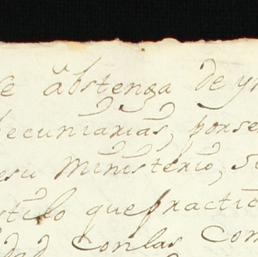 se abstenga de
pecuniarias, por
su Ministerio, s
stilo que practic
con las con